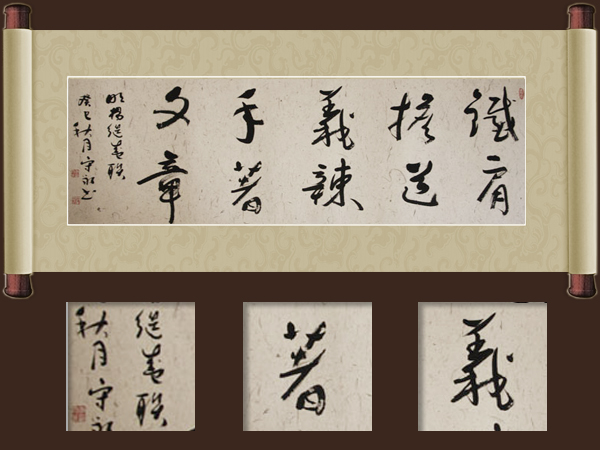 鐵肩
擔道
義辣
手著
文章
明楊繼盛聯
癸巳秋月守永书
繼盛聯
秋月守永
著
義